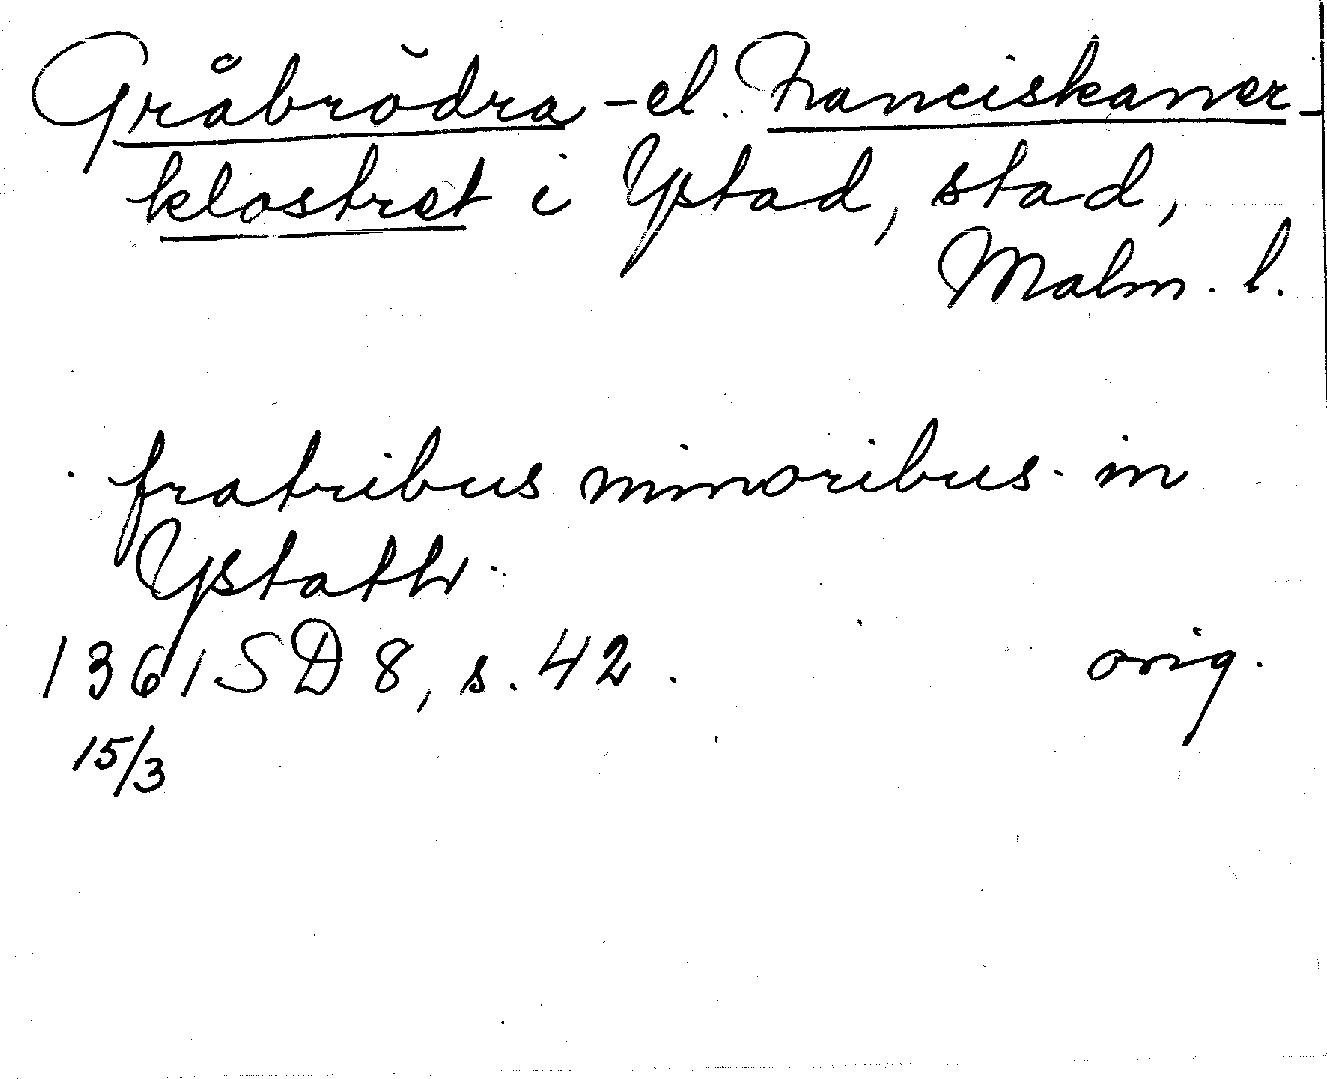 Gråbrödra - el. Franciskaner-
klostret i Ystad, stad,
Malm. l.
fratribus minoribus in
Ystath
1361 SD 8, s. 42. orig.
15/3